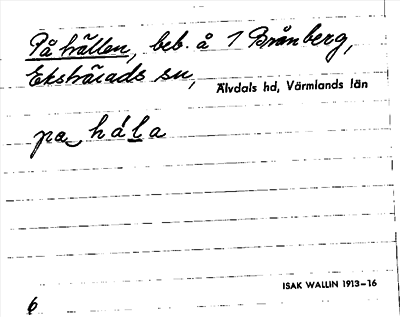 På hällen, beb. å 1 Brånberg,
Ekshärads sn,
Älvdals hd, Värmlands län
pa hála
ISAK WALLIN 1913–16
6